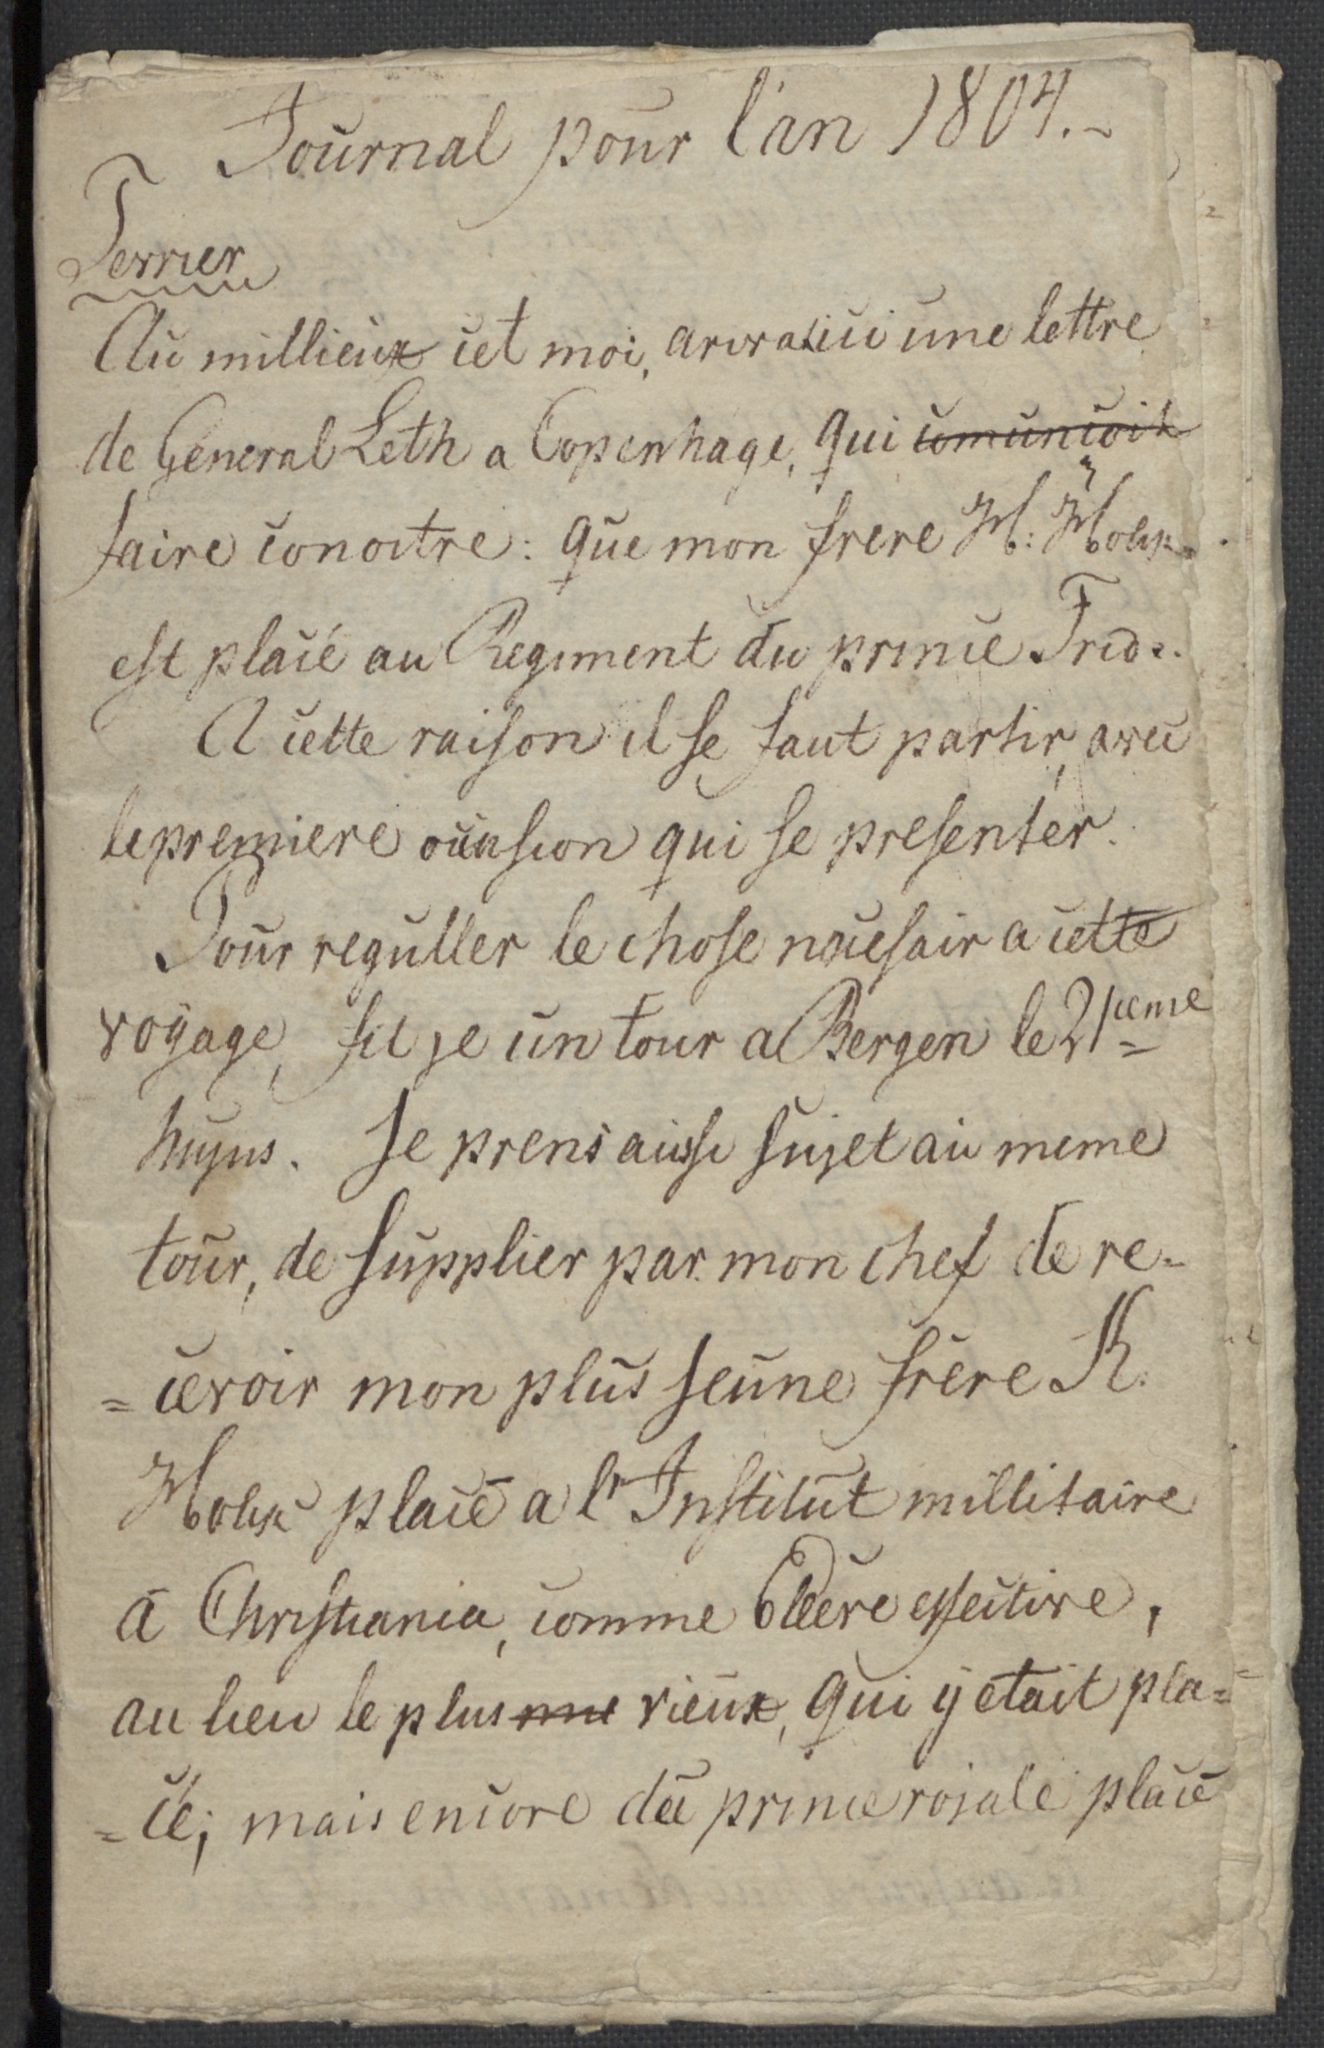 Journal pour l'an 1804.
Ferrier
Au millieux cet moi, arivat ici une lettre
de General Leth a Copenhage, qui comuncoit
faire conoitre: que mon frere H: Holck
est placé au Regiment du prince Frid..
A cette raison il se faut partir, avec
le premiere occasion qui se presenter.
Pour reguller le chose necesair a cette
voÿage, fit je un tour a Bergen le 21ieme
hujus. Je prens aussi sujet au meme
tour, de supplier par mon chef de re-
=cevoir mon plus jeune frere K.
Holck placé a l'Institut millitaire
a Christiania, comme Eleere effective,
au lieu le plus vieux, qui ÿ etait pla=
=cé; mais encore de prince rojale placé